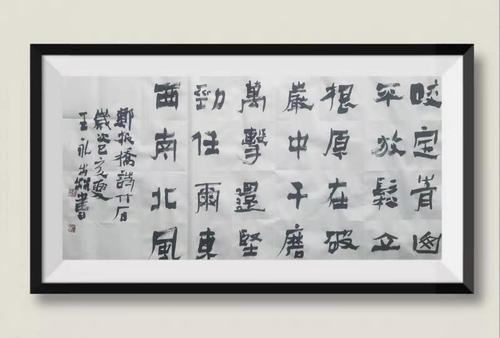 咬定青山
不放鬆立
根原在破
巖中千磨
萬擊還堅
勁任爾東
西南北風
鄭板橋詩竹石
歲次己亥夏
王永書